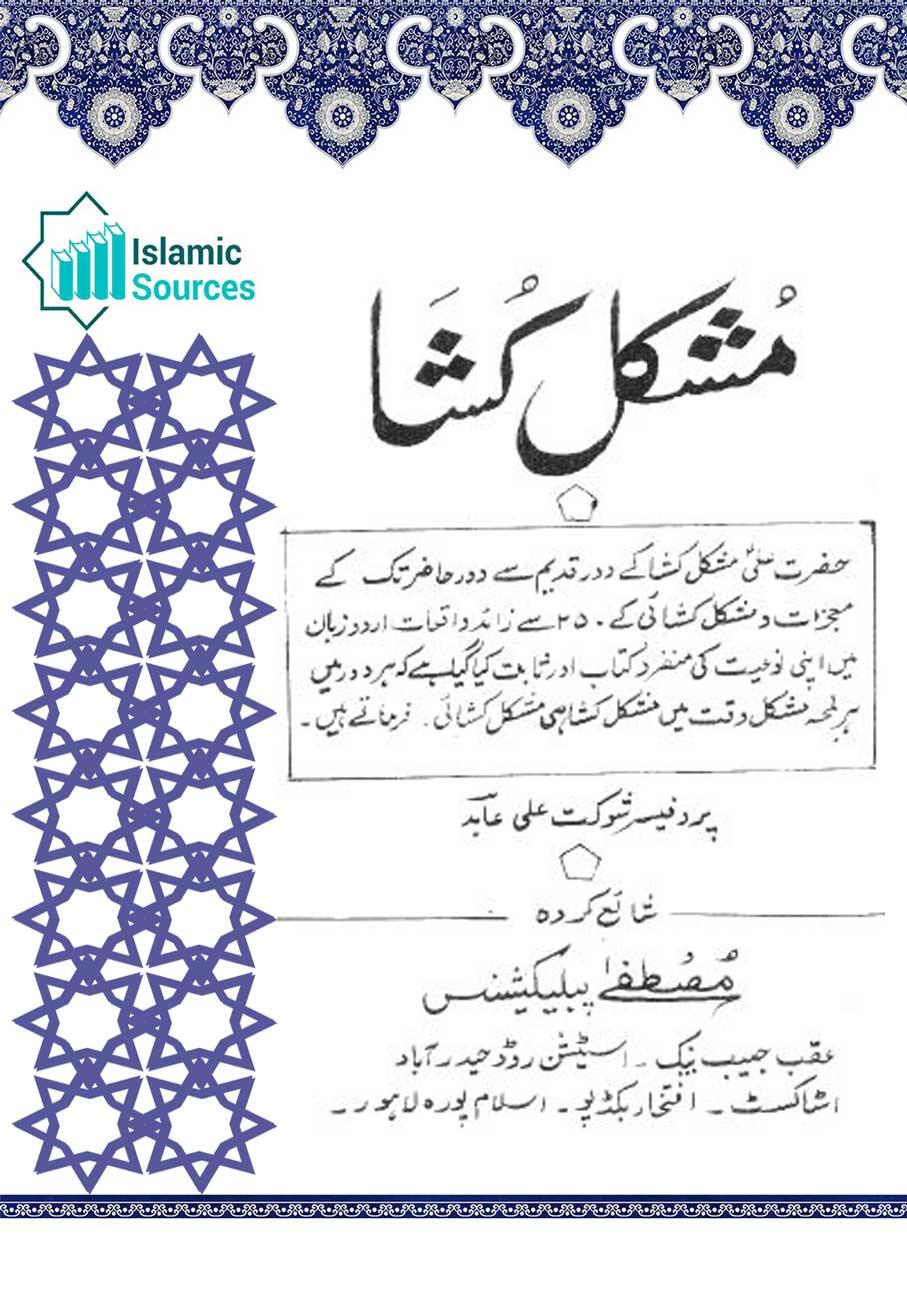 Islamic
Sources
مُشکل کُشَا
حضرت علیؑ مشکل کشا کے دور قدیم سے دور حاضر تک کے
معجزات و مشکل کشائی کے ۲۵۰ سے زائد واقعات اردو زبان
میں اپنی نوعیت کی منفرد کتاب اور ثابت کیا گیا ہے کہ ہر دور میں
ہر لمحہ مشکل وقت میں مشکل کشا ہی مشکل کشائی۔ فرماتے ہیں۔
پروفیسر شوکت علی عابد
شائع کردہ
مُصُطفےٰ پبلیکیشنس
عقب حبیب بینک۔ اسٹیشن روڈ حیدرآباد
اسٹاکسٹ۔ افتخار بکڈپو۔ اسلام پورہ لاہور۔